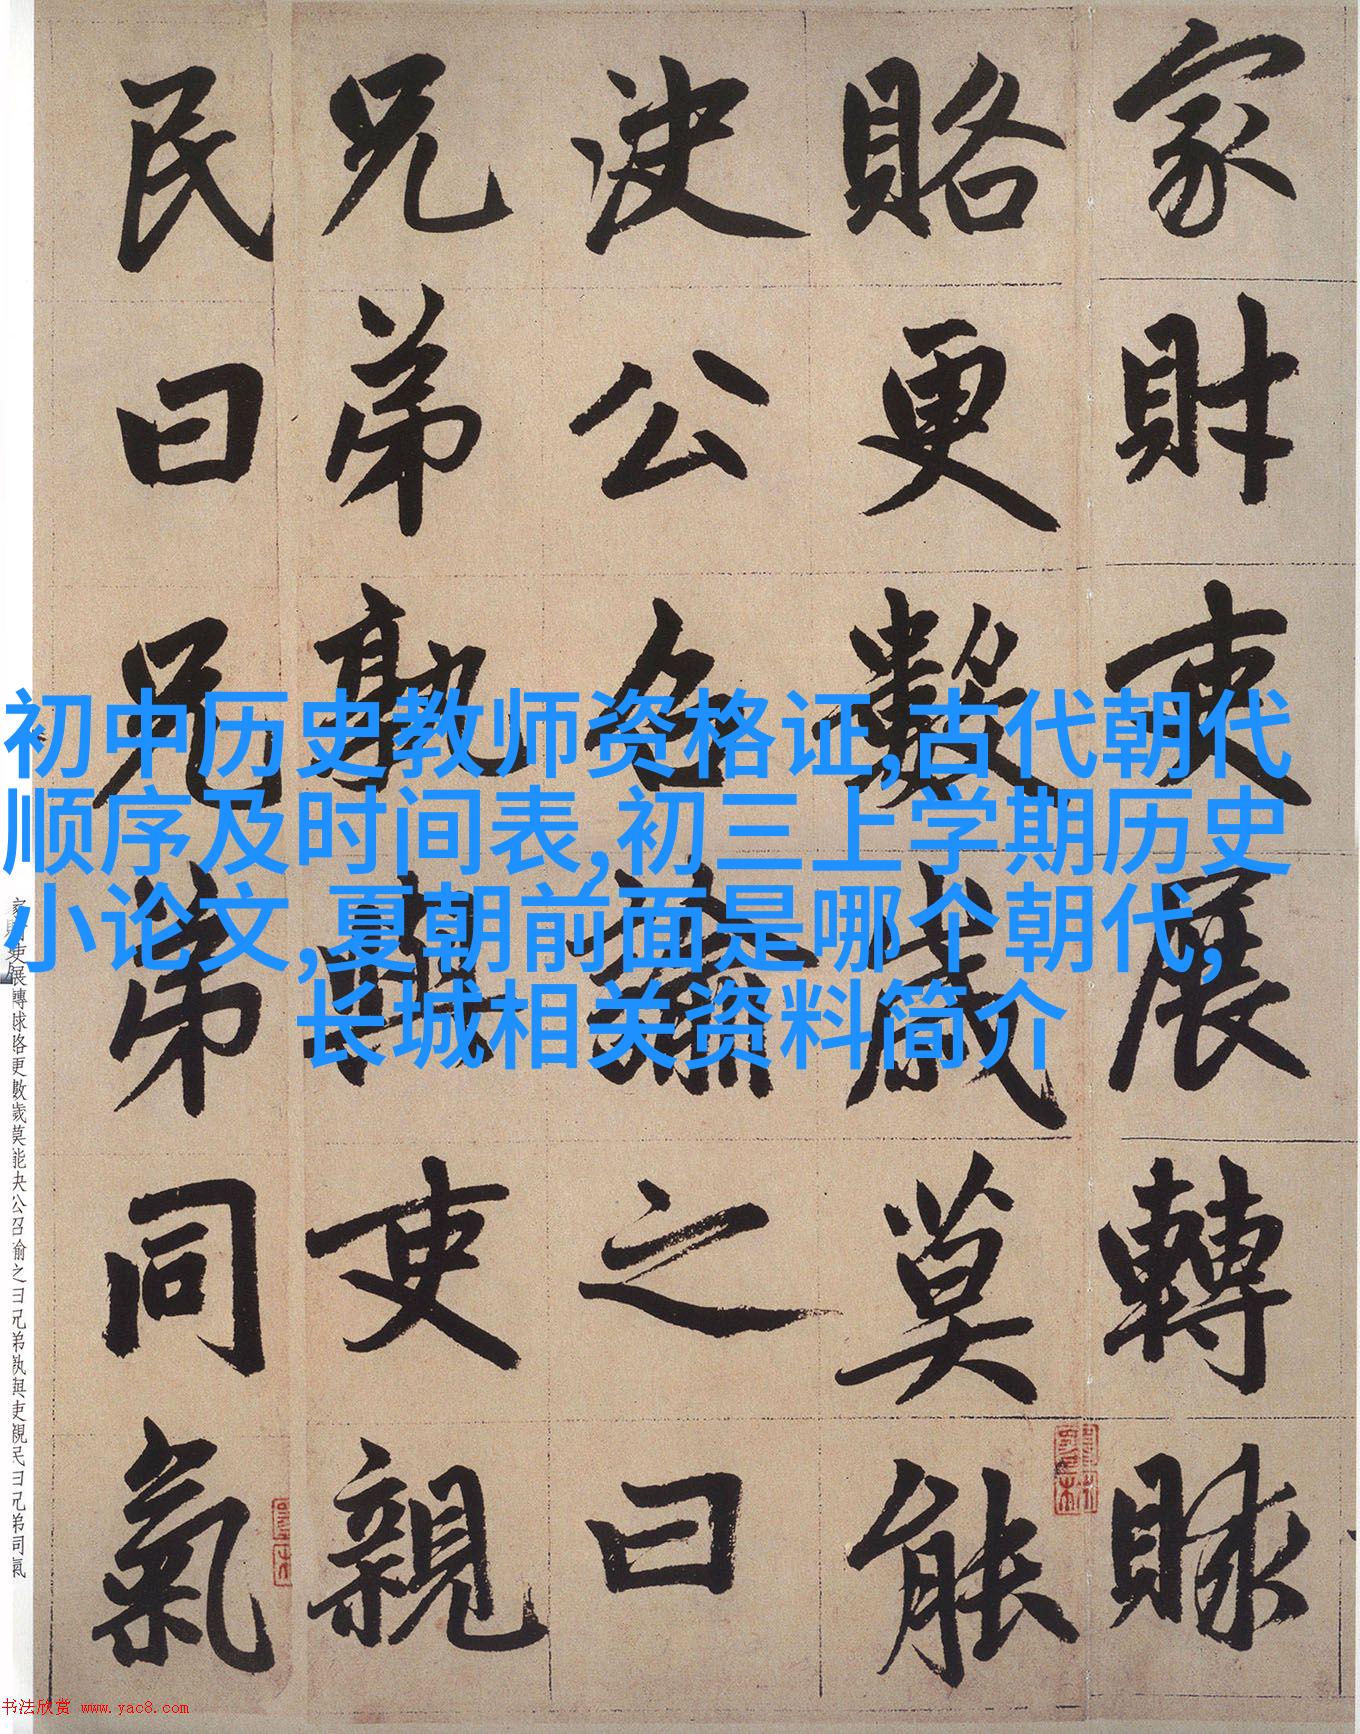 家財吏展轉賕
賂更數歲莫能
決公召諭之曰
兄弟孰與吏親
民曰兄弟同氣
初中历史教师资格证,古代朝代
顺序及时间表,初三上学期历史
小论文,夏朝前面是哪个朝代,
长城相关资料简介
家財吏展轉賕賂更數歲莫能决公召諭之曰兄弟孰與吏親民曰兄弟同氣
书法欣赏 www.yac8.com